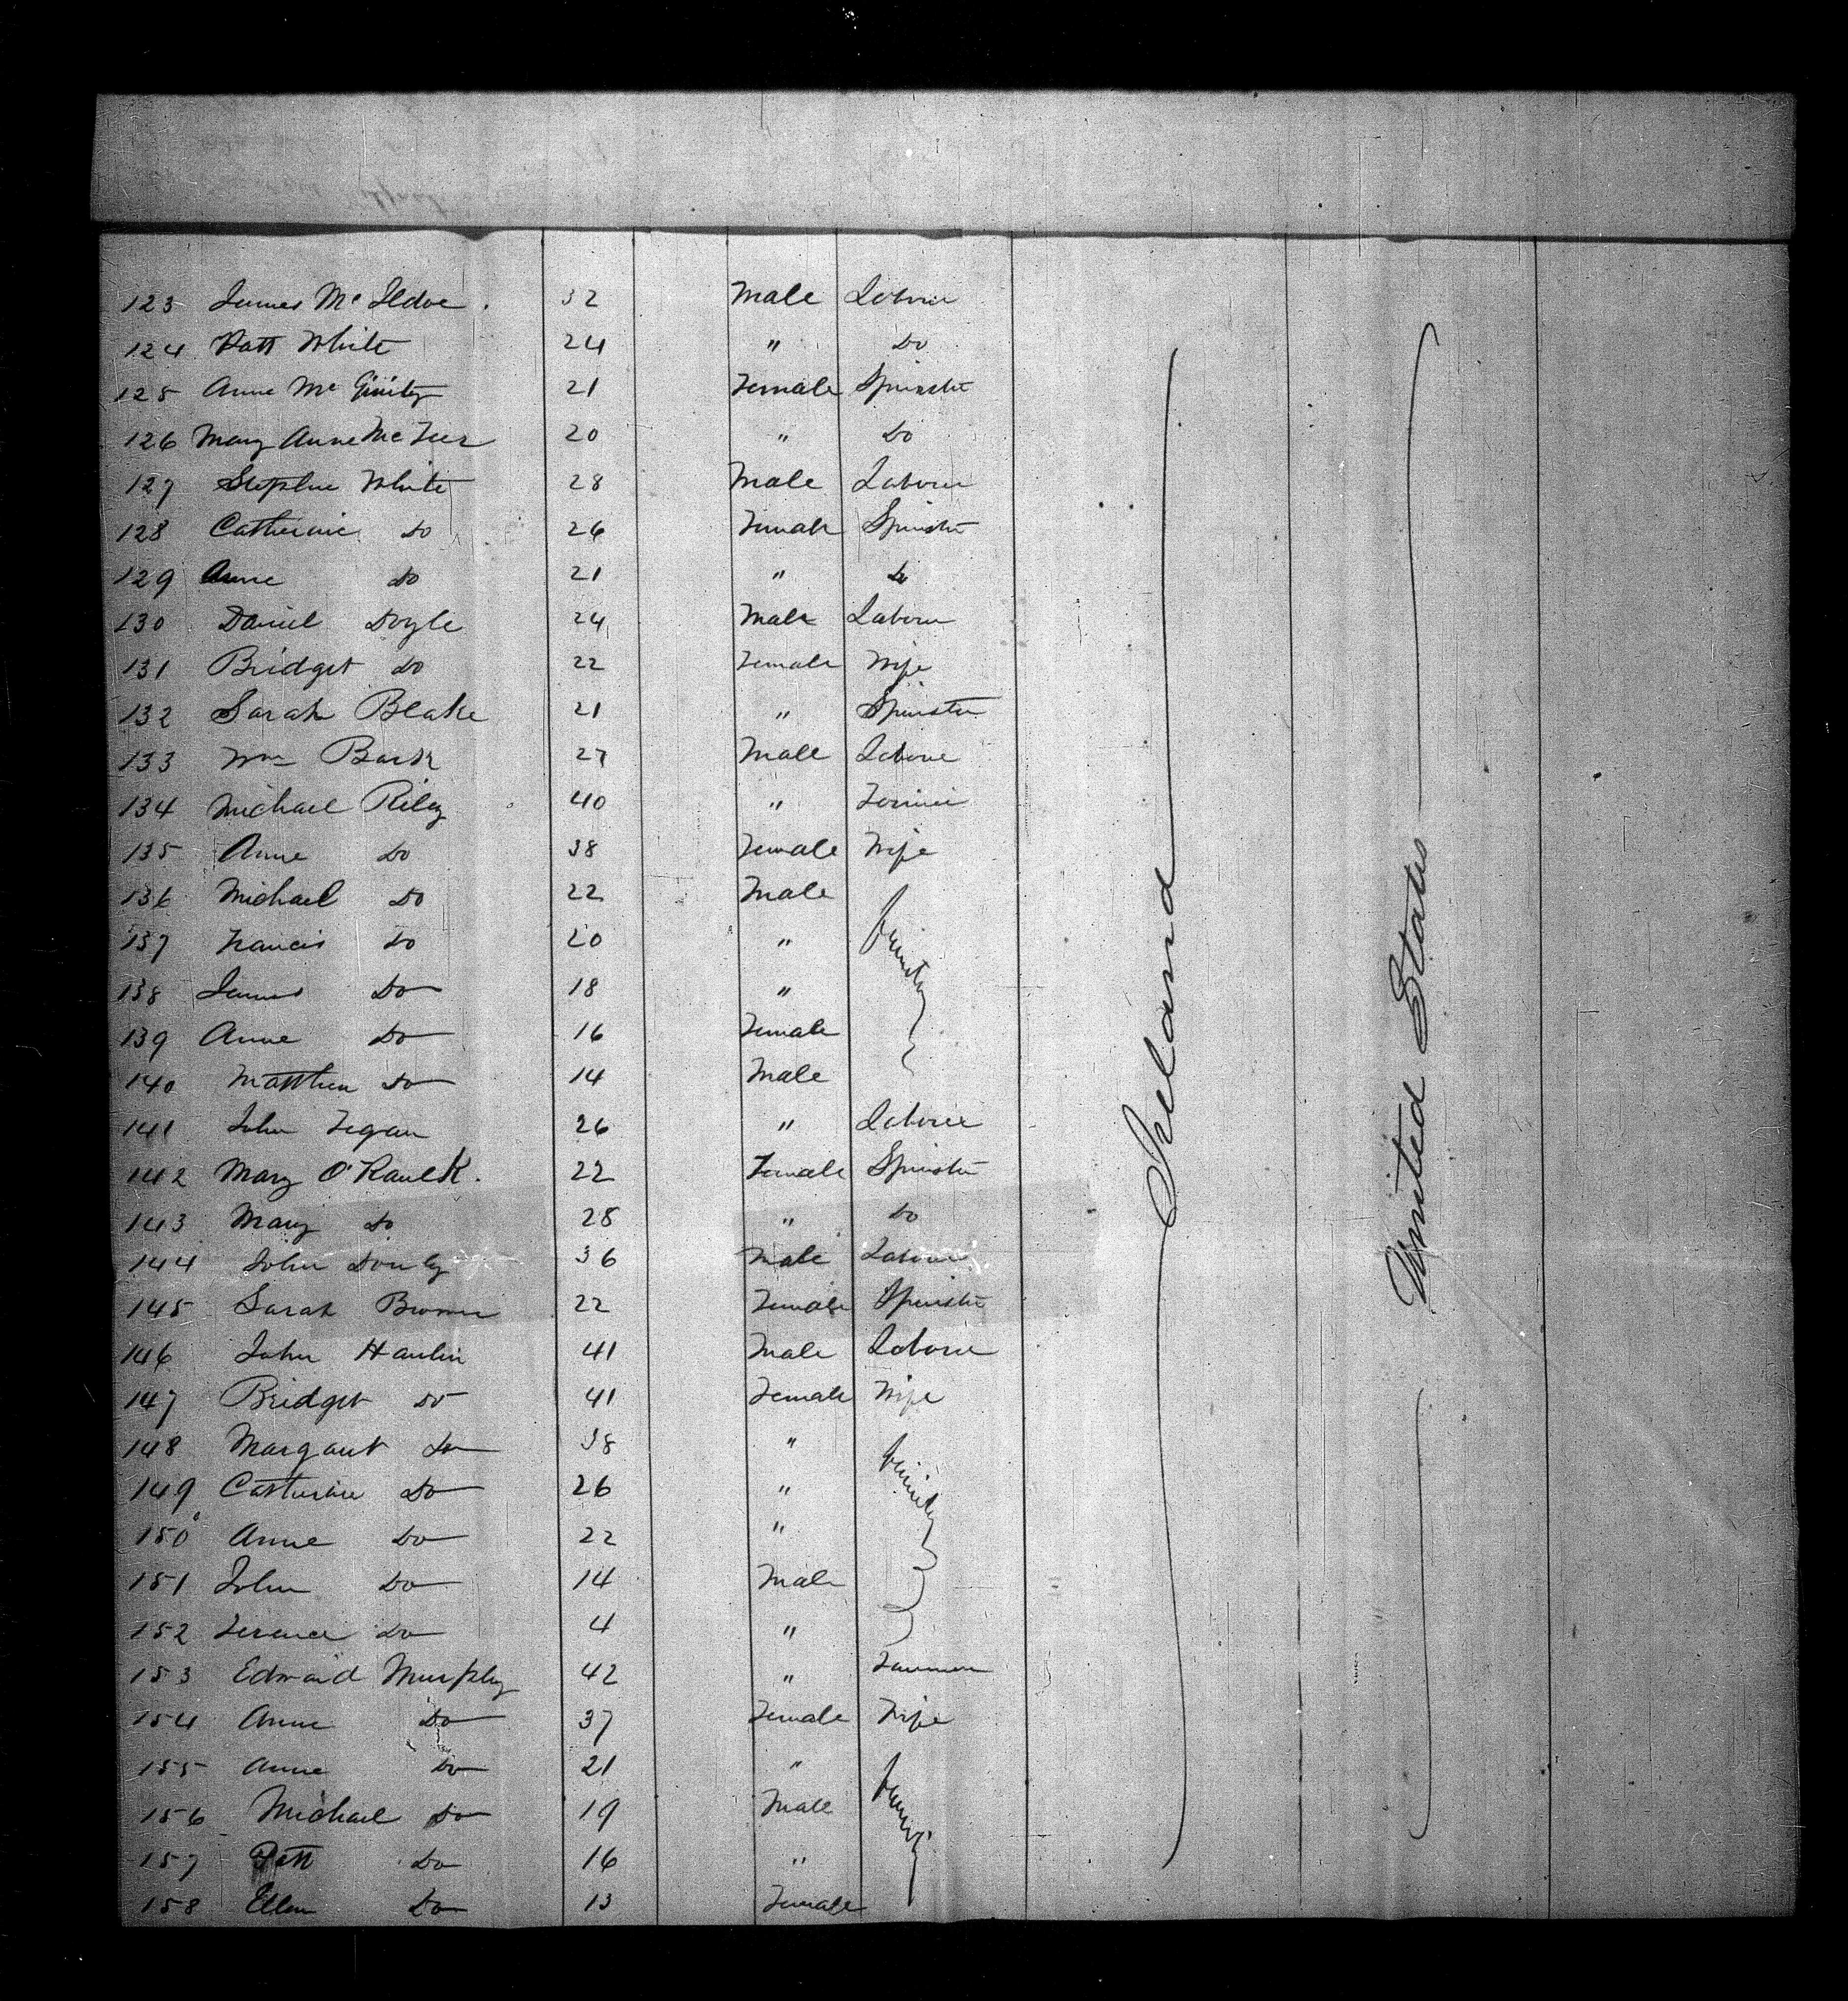 123 James Mc Ildoe. 32 Male Laborer
124 Patt White 24 " Do
125 Anne Mc Ginity 21 Female Spinster
126 Mary Anne Mc Teer 20 " Do
127 Stephen White 28 Male Laborer
128 Catherine Do 26 Female Spinster
129 Anne Do 21 " Do
130 Daniel Doyle 24 Male Laborer
131 Bridget Do 22 Female Wife
132 Sarah Blake 21 " Spinster
133 Wm 27 Male Laborer
134 Michael Riley 40 " Farmer
135 Anne Do 38 Female Wife
136 Michael Do 22 Male
137 Francis Do 20 " family
138 James Do 18 "
139 Anne Do 16 Female
140 Matthew Do 14 Male
141 John Fegan 26 " Laborer
142 Mary 22 Female Spinster
143 Mary Do 28 " Do
144 John Donly 36 Male Laborer
145 Sarah 22 Female Spinster
146 John Hanlin 41 Male Laborer
147 Bridget Do 41 Female Wife
148 Margaret Do 38 "
149 Catherine Do 26 " family
150 Anne Do 22 "
151 John Do 14 Male
152 Terence Do 4 "
153 Edward Murphy 42 " Farmer
154 Anne Do 37 Female Wife
155 Anne Do 21 "
156 Michael Do 19 Male family
157 Patt Do 16 "
158 Ellen Do 13 Female
Ireland
United States